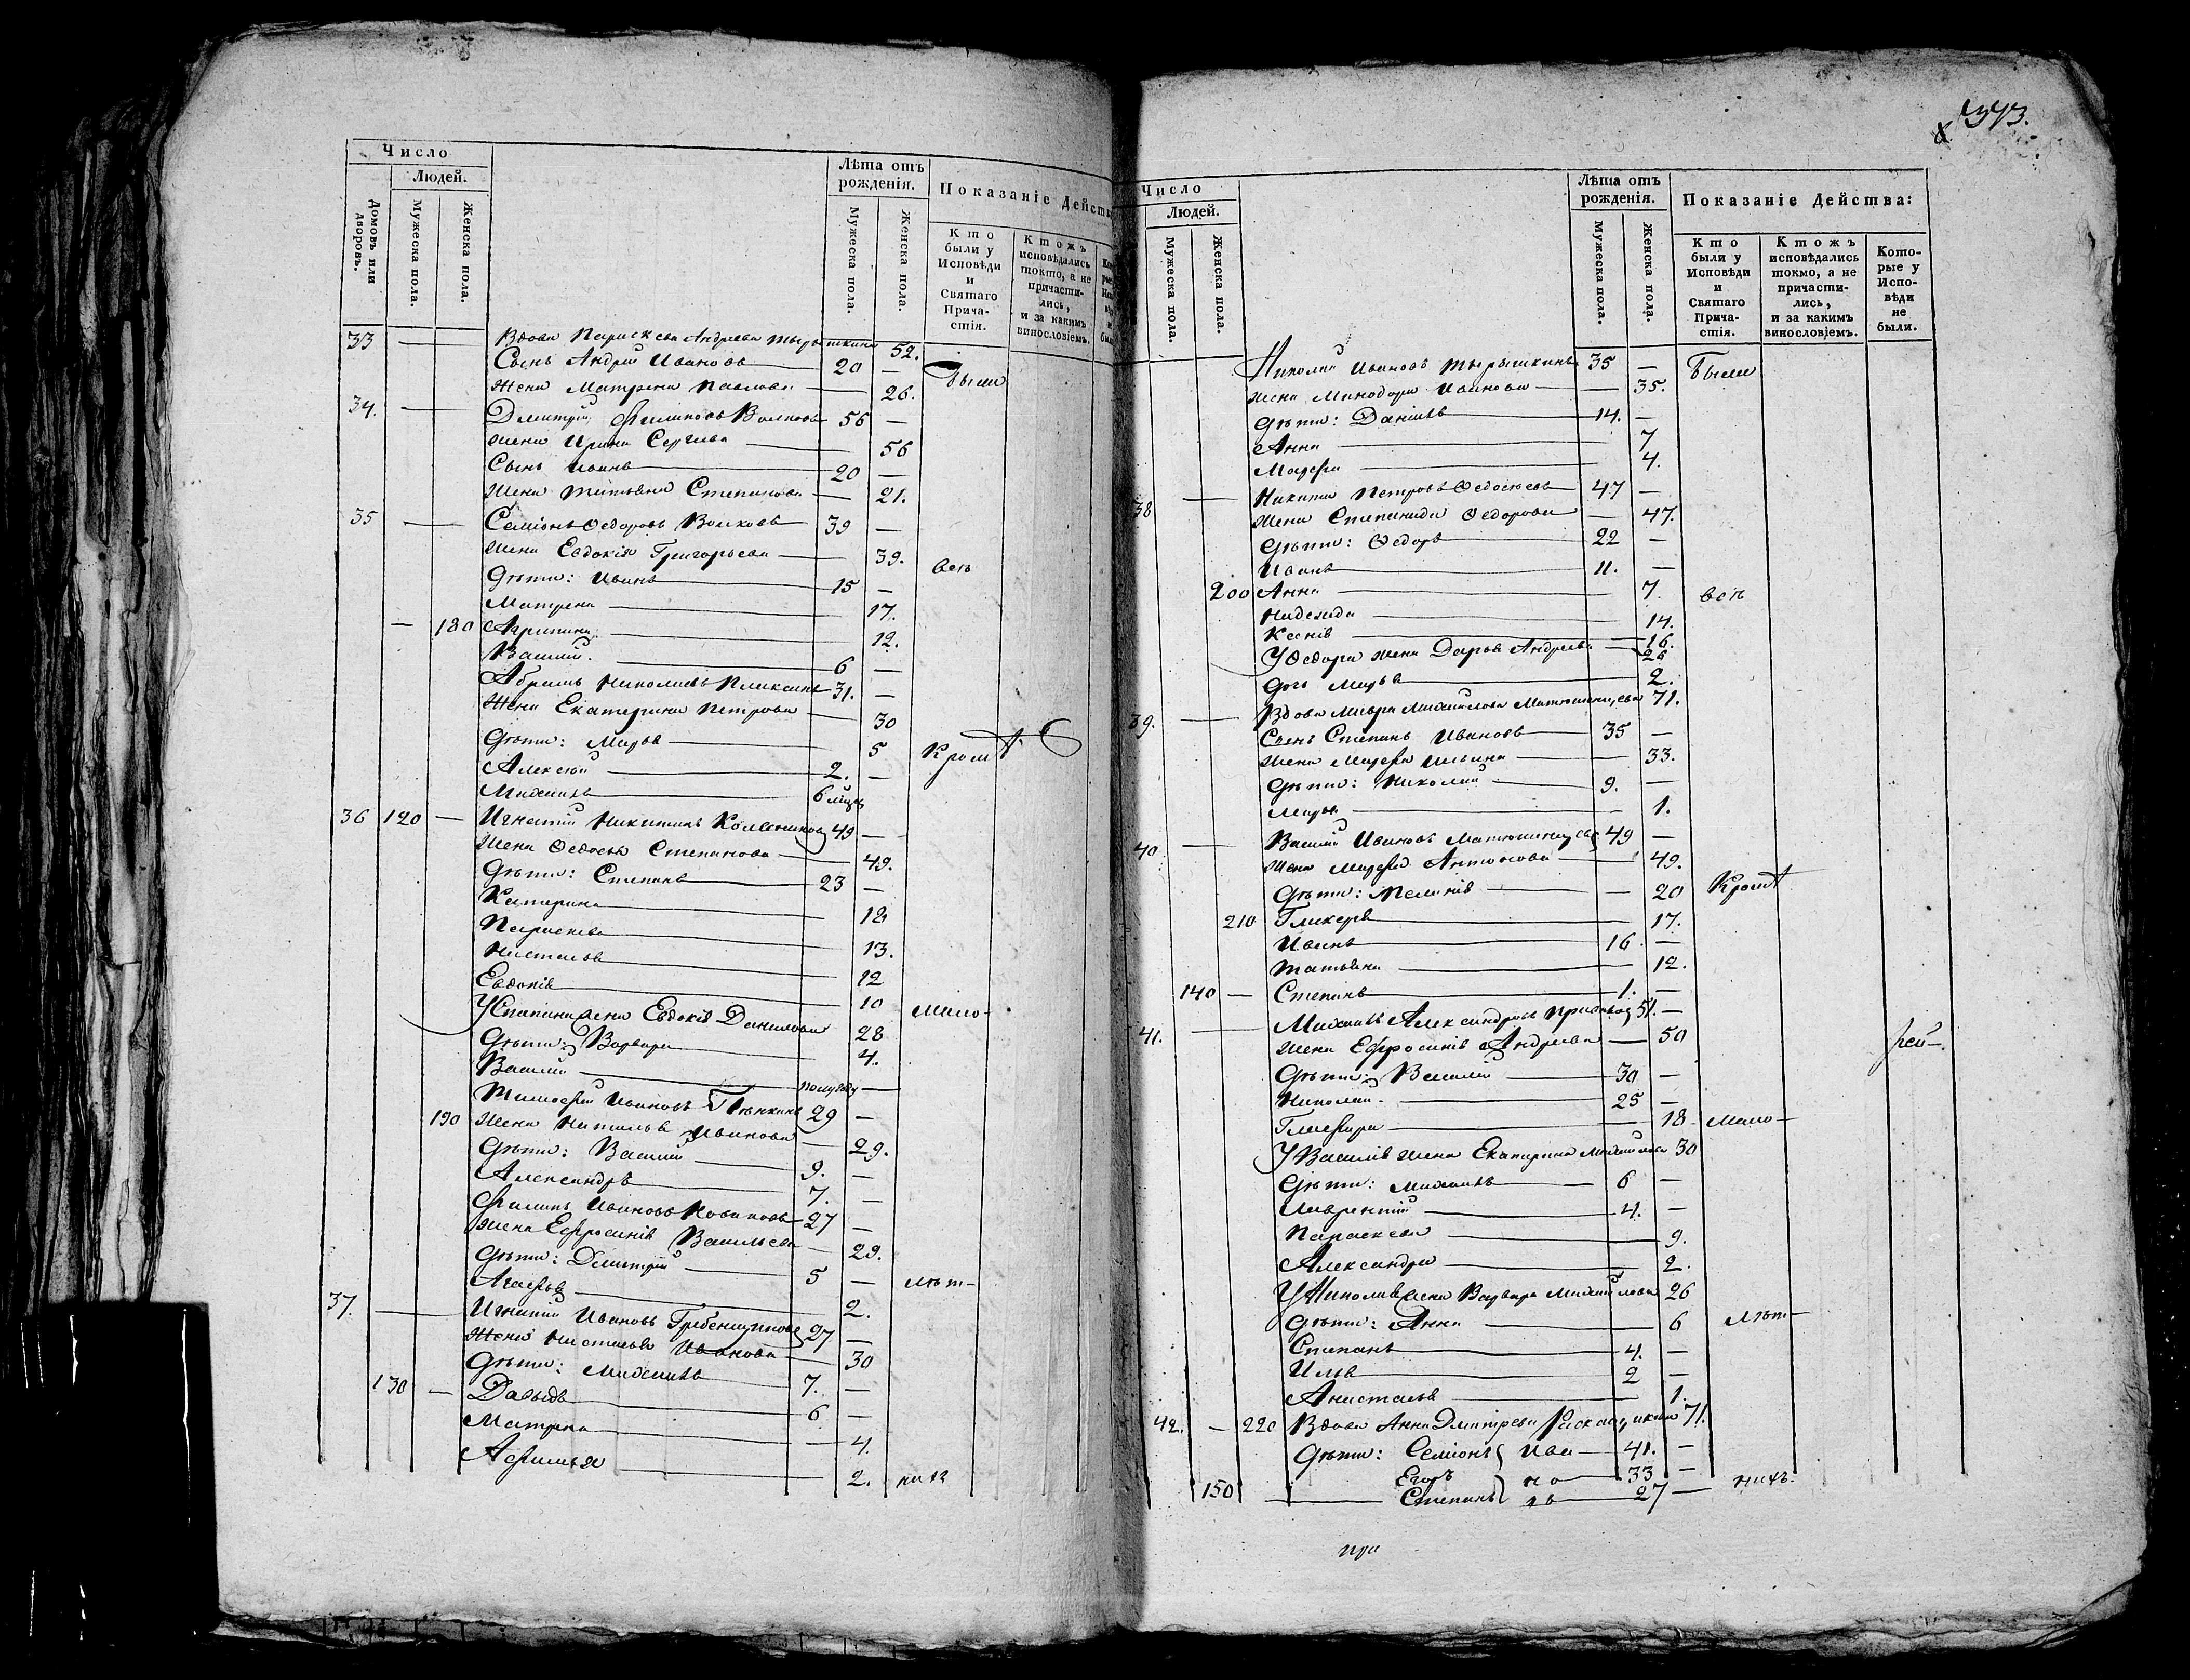 Число
Людей.
Домовъ или дворовъ.
Мужеска пола.
Женска пола.
Лѣта отъ рожденія.
Мужеска пола.
Женска пола.
Показаніе Действ
Кто были у Исповѣди и Святаго Причастія.
Ктожъ исповѣдались токмо, а не причастились, и за какимъ винословіемъ.
33 — Вдова Параскева Андреева Тырышкина 52.
Сынъ Андрей Ивановъ 20 — были
Жена Матрена Павлова 26.
34. — Дмитрій Филиповъ Волковъ 56 —
Жена Ирина Сергѣева 56
Сынъ Иванъ 20 —
Жена Татьяна Степанова — 21.
35 — Семіонъ Ѳедоровъ Волковъ 39 —
Жена Евдокія Григорьева — 39. всѣ
Дѣти: Иванъ 15 —
Матрена 17.
— 180 Агрипина 12.
Василій. 6 —
Абрамъ Николаевъ Плаксинъ 31. —
Жена Екатерина Петрова — 30
Дѣти: Марья 5 Кромѣ
Алексѣй 2. —
Михаилъ 6 мѣсяц
36 120 — Игнатій Никитинъ 49 —
Жена Ѳедосья Степанова 49.
Дѣти: Степанъ 23 —
Катерина 18
Параскева 13.
Настасья 12
Евдокія 10 мало-
У Степана жена Евдокія Данилова 28
Дѣти: Варвара 4.
Василій полугоду —
Тимофей Ивановъ 29 —
190 Жена Наталья Иванова — 29.
Дѣти: Василій 9. —
Александръ 7. —
Филипъ Ивановъ Новиковъ 27 —
Жена Ефросинія Васильева — 29.
Дѣти: Дмитрій 5 — лѣт-
Агафья 2.
37. — Игнатій Ивановъ Гребенщиковъ 27 —
Жена Настасья Иванова 30
Дѣти: Михаилъ 7. —
130 — Давыдъ 6 —
Матрена — 4.
Афимья 2. нихъ
343.
Число
Людей.
Мужеска пола.
Женска пола.
Лѣта отъ рожденія.
Мужеска пола.
Женска пола.
Показаніе Действа:
Кто были у Исповѣди и Святаго Причастія.
Ктожъ исповѣдались токмо, а не причастились, и за какимъ винословіемъ.
Которые у Исповѣди не были.
Николай Ивановъ Тырышкинъ 35 — Были
Жена Минодора Иванова — 35.
Дѣти: Даніилъ 14. —
Анна 7
Марфа 4.
38 — Никита Петровъ Ѳедосѣевъ 47 —
Жена Степанида Ѳедорова — 47.
Дѣти: Ѳедоръ 22 —
Иванъ 11. —
200 Анна 7. всѣ
Надежда 14.
Ксенія 16.
У Ѳедора жена Дарья Андреева — 26
Дочь Марья 2.
39. — Вдова Мавра Михайлова 71.
Сынъ Степанъ Ивановъ 35 —
Жена Марфа Ильина 33.
Дѣти: Николай 9. —
Марья 1.
40 — Василій Ивановъ 49 —
Жена Марфа Антонова 49.
Дѣти: Пелагія — 20 Кромѣ
210 Гликерія 17.
Иванъ 16. —
Татьяна 12.
140 — Степанъ 1. —
41. — Михаилъ Александровъ 51. —
Жена Ефросинія Андреева — 50
Дѣти: Василій 30 —
Николай 25 —
Глафира 18 мало-
У Василія жена Екатерина Михайлова 30
Дѣти: Михаилъ 6 —
Лаврентій 4. —
Параскева 9.
Александра 2.
У Николая жена Варвара Михайлова 26
Дѣти: Анна 6 лѣт-
Степанъ 4. —
Илья 2 —
Анастасья 1.
42. — 220 Вдова Анна Дмитрева 71.
Дѣти: Семіонъ Ива 41. —
Егоръ но 33 —
150 Степанъ въ 27 — нихъ.